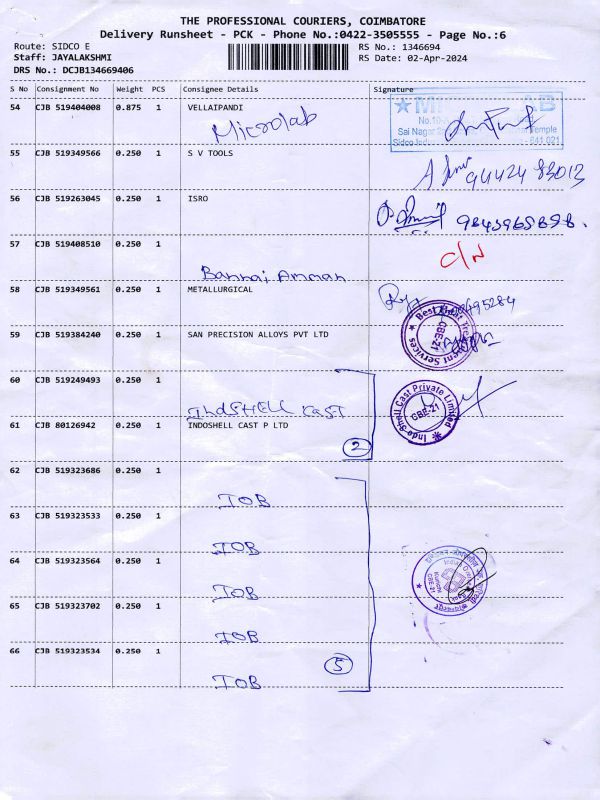 THE PROFESSIONAL COURIERS, COIMBATORE
Delivery Runsheet - PCK - Phone No.:0422-3505555 - Page No.:6
Route: SIDCO E
RS No.: 1346694
Staff: JAYALAKSHMI
RS Date: 02-Apr-2024
DRS No.: DCJB134669406
S No Consignment No Weight PCS Consignee Details Signature
54 CJB 519404008 0.875 1 VELLAIPANDI
Microlab
No.10
Sai Nagar Temple
Sidco Indus 641 021
55 CJB 519349566 0.250 1 S V TOOLS
94424 83013
56 CJB 519263045 0.250 1 ISRO
9843965898.
57 CJB 519408510 0.250 1
C/N
Bannai Amman
58 CJB 519349561 0.250 1 METALLURGICAL
Best Heat Treatment Services
CBE-21
59 CJB 519384240 0.250 1 SAN PRECISION ALLOYS PVT LTD
60 CJB 519249493 0.250 1
IndSHELL CAST
Indo Shell Cast Private Limited
CBE-21
61 CJB 80126942 0.250 1 INDOSHELL CAST P LTD
2
62 CJB 519323686 0.250 1
IOB
63 CJB 519323533 0.250 1
IOB
64 CJB 519323564 0.250 1
IOB
65 CJB 519323702 0.250 1
IOB
66 CJB 519323534 0.250 1
5
IOB